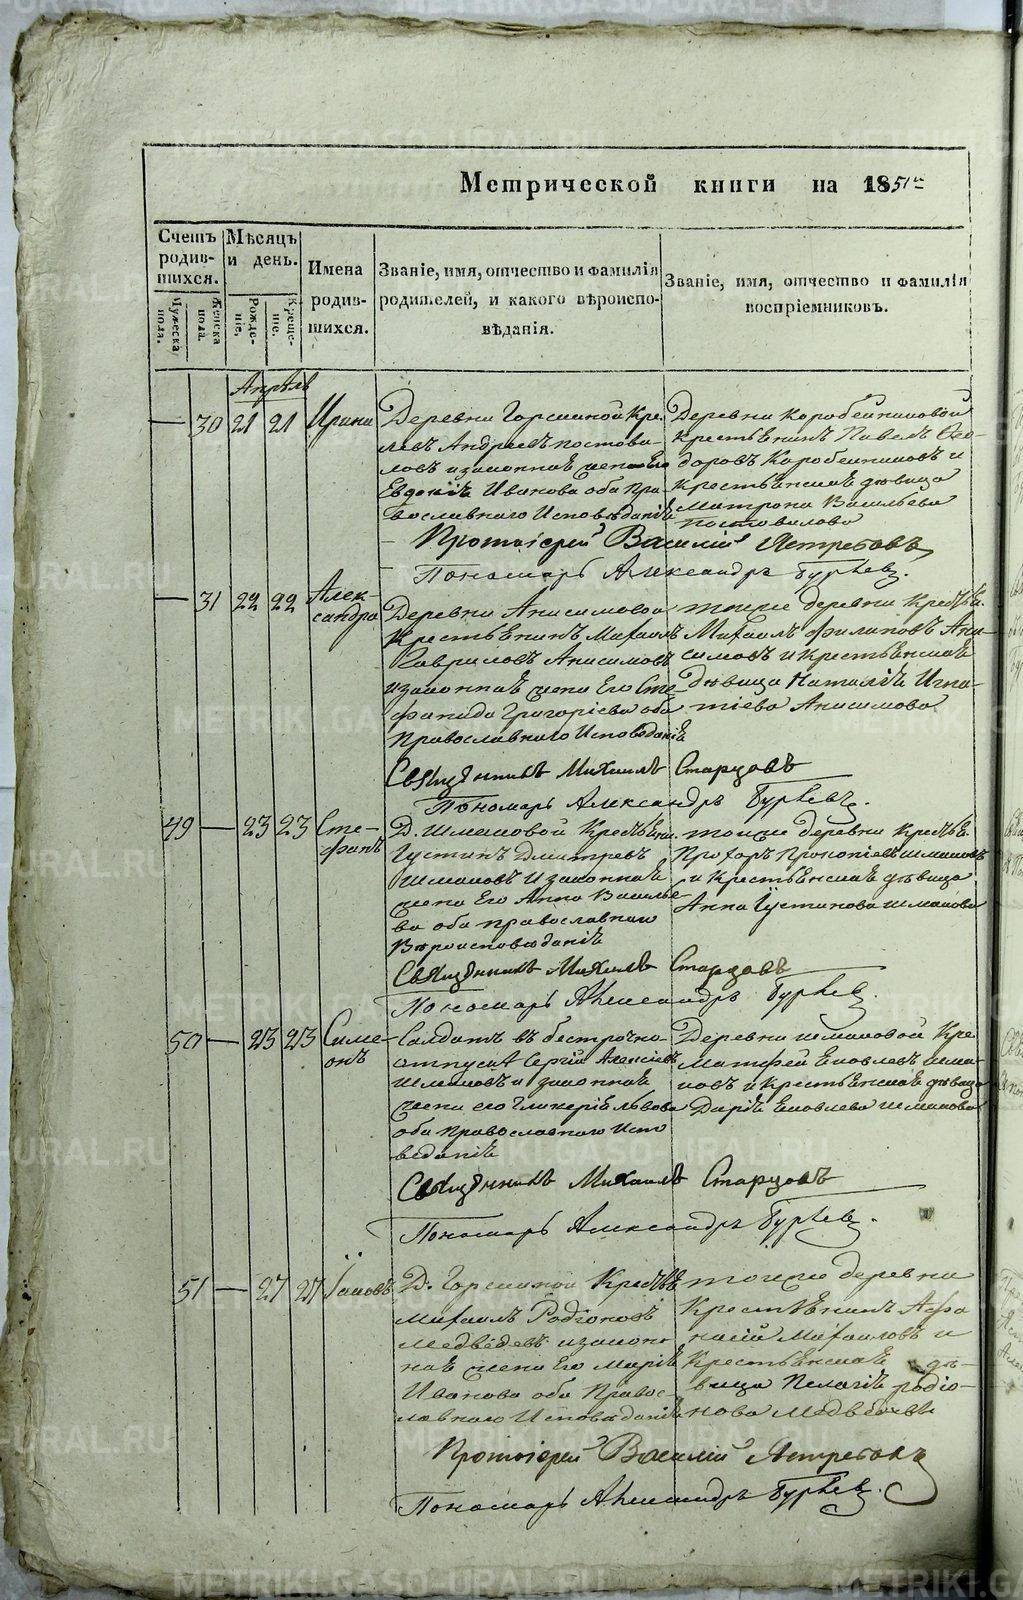 Метрической книги на 1851й
Счетъ родив-шихся.
Мужеска пола.
Женска пола.
Мѣсяцъ и день.
Рожде-ніе.
Креще-ніе.
Имена родив-шихся.
Званіе, имя, отчество и фамилія родителей, и какого вѣроиспо-вѣданія.
Званіе, имя, отчество и фамилія воспріемниковъ.
Апрѣль
— 30 21 21 Ирина
Деревни Горскиной Кре.
левъ Андреевъ постова-
ловъ изаконнаѣ жена Его
Евдокіѣ Иванова оба пра-
вославнаго Исповѣданіѣ
Деревни Коробейниковой
крестьѣнинъ Павелъ Фео-
доровъ Коробейниковъ и
крестьѣнскаѣ дѣвица
Матрона Васильева
постовалова
Протоіерей Василій Ястребовъ
Пономарь Александръ Гурьевъ.
— 31 22 22 Алек-
сандра
Деревни Анисимовой
Крестьѣнинъ Михаилъ
Гавриловъ Анисимовъ
изаконнаѣ жена Его Сте-
фанида Григоріева оба
Православнаго Исповѣданіѣ
тойже деревни
Михаилъ Филиповъ Ани-
симовъ и крестьѣнскаѣ
Дѣвица Наталіѣ Игна-
тіева Анисимова
Священникъ Михаилъ Старцовъ
Пономарь Александръ Гурьевъ.
49 — 23 23 Сте-
фанъ
Д. Шмаковой
Густинъ Дмитревъ
Шмаковъ изаконнаѣ
жена Его Анна Василье
ва оба православнаго
Вѣроисповѣданіѣ
тойже деревни
Прохоръ Прокопіевъ шмаковъ
и Крестьѣнскаѣ дѣвица
Анна Густинова шмакова
Священникъ Михаилъ Старцовъ
Пономарь Александръ Гурьевъ.
50 — 23 23 Симе-
онъ
Салдатъ въ безсрочно
отпуска Сергій Алексіевъ
Шмаковъ и законнаѣ
жена его Гликеріѣ Львова
оба православнаго Испо
веданіѣ
Деревни шмаковой Кре
Матфей Яковлевъ шма-
ковъ и Крестьѣнскаѣ дѣвица
Даріѣ Яковлева шмакова
Священникъ Михаилъ Старцовъ
Пономарь Александръ Гурьевъ.
51 — 27 27 Іаковъ
Д. Горскиной
Михаилъ Родіоновъ
Медвѣдевъ изакон-
наѣ жена Его Маріѣ
Иванова оба Право-
славнаго Исповѣданіѣ
тойже деревни
Крестьѣнинъ Афа
насій Михаиловъ и
Крестьѣнскаѣ дѣ-
вица Пелагіѣ родіо-
нова Медвѣдевы
Протоіерей Василій Ястребовъ
Пономарь Александръ Гурьевъ.
METRIKI.GASO-URAL.RU